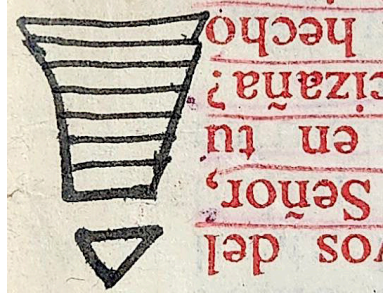 vos del
Señor,
en tu
cizaña?
hecho